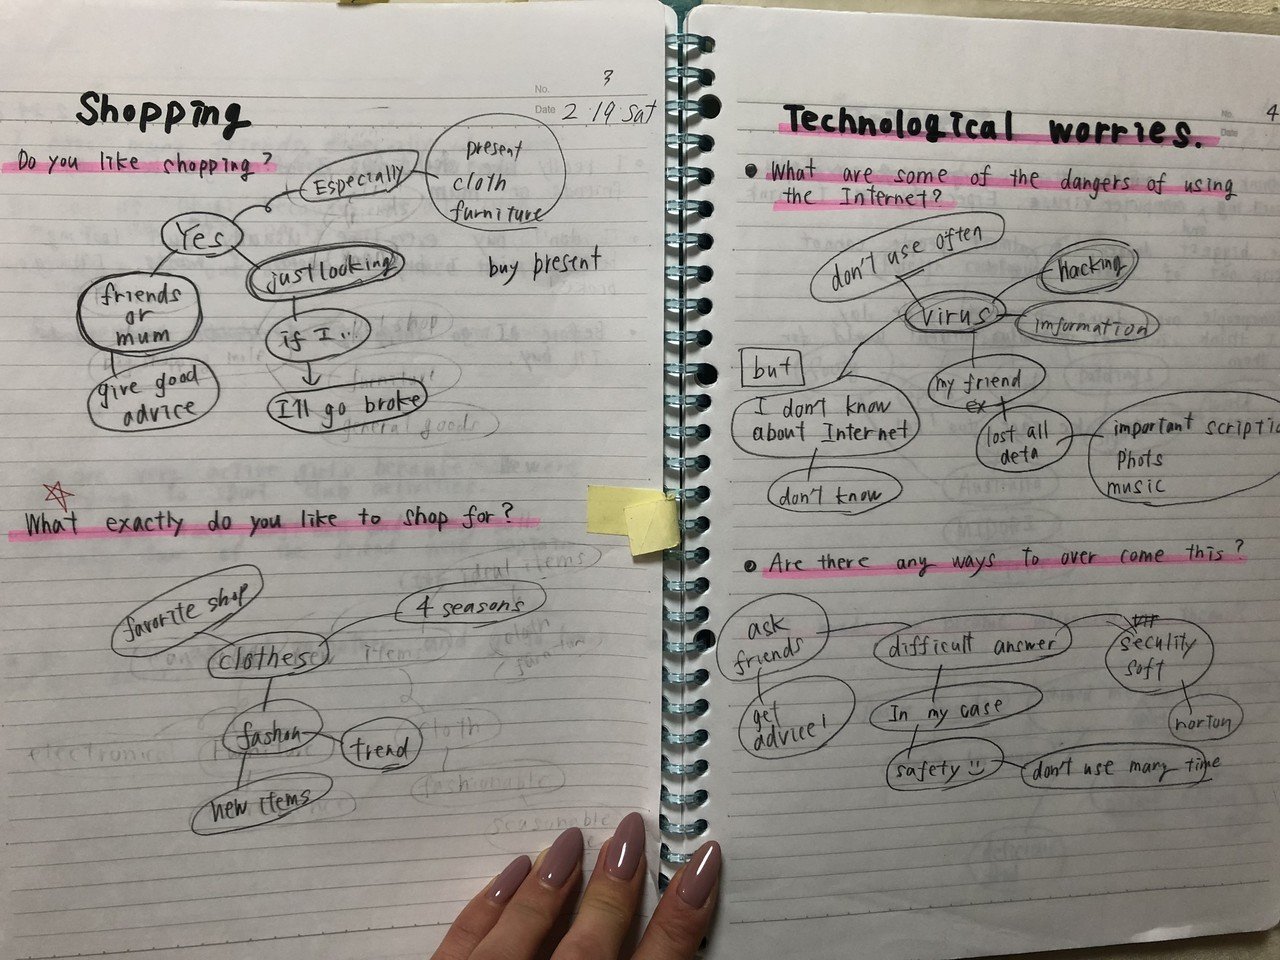 No. 3
Date 2.19.sat
Shopping
Do you like shopping?
Especially
present
cloth
furniture
Yes
just looking
buy present
friends
or
mum
if I...
give good
advice
I'll go broke
What exactly do you like to shop for?
favorite shop
4 seasons
clothes
fashon
trend
new items
No. 4
Date
Technological worries.
What are some of the dangers of using
the Internet?
don't use often
Hacking
virus
imformation
but
my friend
ex
I don't know
about Internet
lost all
deta
important scriptio
Phots
music
don't know
Are there any ways to over come this?
ask
friends
difficult answer
seculity
soft
get
advice!
In my case
norton
safety
don't use many time